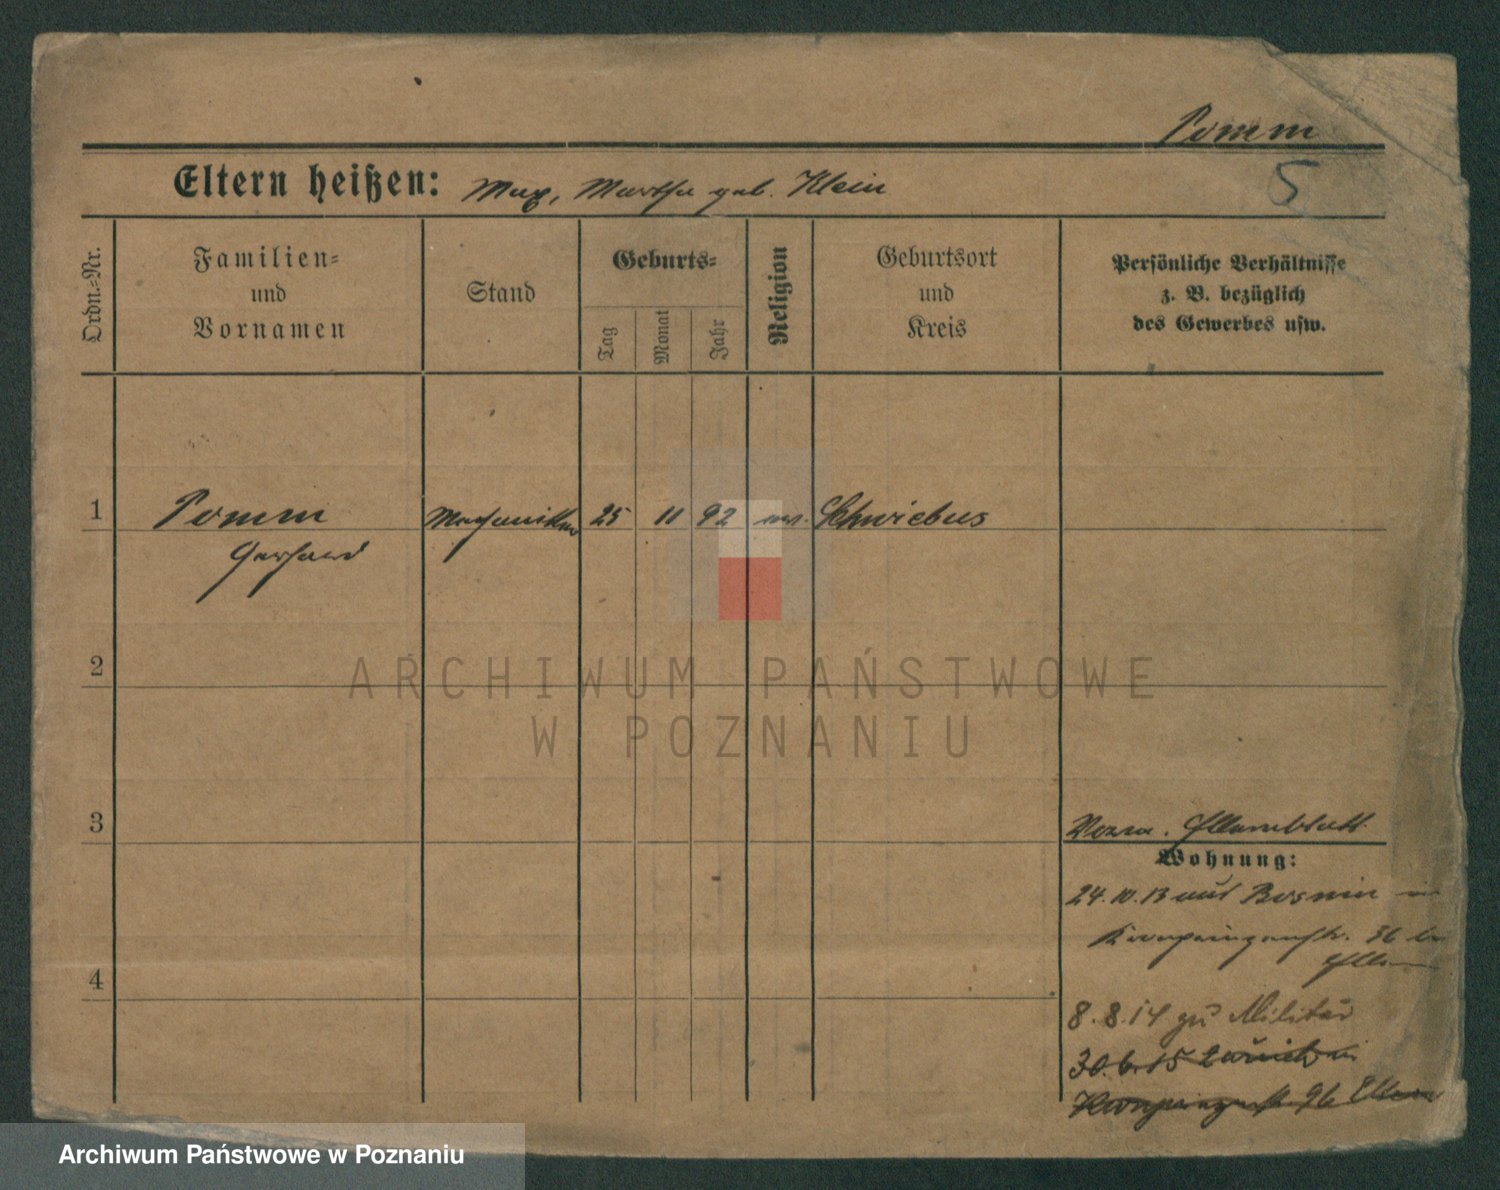 Pomm
5
Eltern heißen: Max, Martha geb. Klein
Ordn.-Nr.
Familien-
und
Vornamen
Stand
Geburts-
Tag
Monat
Jahr
Religion
Geburtsort
und
Kreis
Persönliche Verhältnisse
z. B. bezüglich
des Gewerbes usw.
1
Pomm Mechaniker 25 11 92 ev. Schwiebus
Gerhard
2
ARCHIWUM PAŃSTWOWE
W POZNANIU
3
Elternblatt
Wohnung:
24.10.13 aus Bosnien in
Kronprinzenstr. 96 bei
Eltern
4
8.8.14 zu Militär
30.6.15 zurück in
Kronprinzenstr 96 Eltern
Archiwum Państwowe w Poznaniu